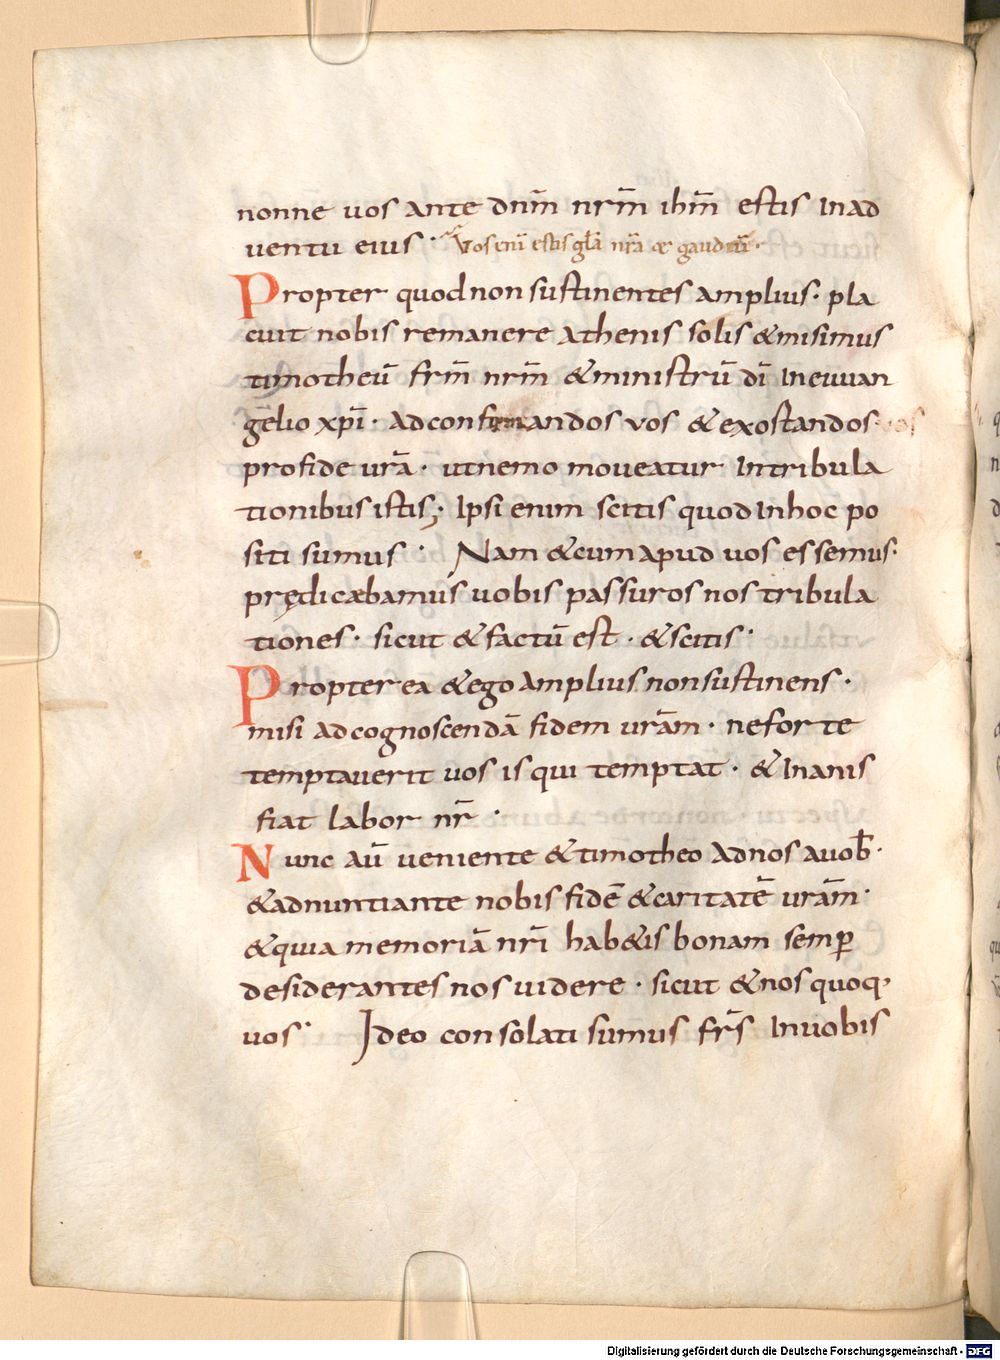 nonne uos ante dnm̄ nrm̄ ihm̄ estis In ad
uentu eius · Vos enī estis glā nrā & gaudiū ·
Propter quod non sustinentes amplius · pla
cuit nobis remanere athenis solis & misimus
timotheū frm̄ nrm̄ & ministrū dī In euuan
gēlio xpī · Ad confirmandos vos & exostandos · uos
pro fide urā · ut nemo moueatur In tribula
tionibus istis ; Ipsi enim scitis quod In hoc po
siti sumus · Nam & cum apud uos essemus ·
prędicabamus uobis passuros nos tribula
tiones · sicut & factū est · & scitis ·
Propter ea & ego amplius non sustinens ·
misi ad cognoscendā fidem urām · ne forte
temptauerit uos is qui temptat · & Inanis
fiat labor nr̄ ·
Nunc aū ueniente & timotheo ad nos a uob̄ ·
& adnuntiante nobis fidē & caritatē urām ·
& quia memoriā nrī hab&is bonam semꝑ
desiderantes nos uidere · sicut & nos quoq;
uos · Ideo consolati sumus frs̄ In uobis
Digitalisierung gefördert durch die Deutsche Forschungsgemeinschaft - DFG